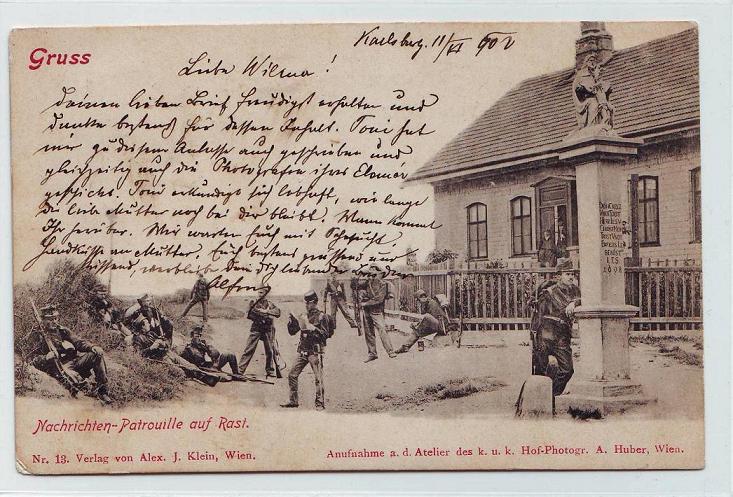 Gruss
Karlsburg. 11/VI 902
Liebe Wilma!
Deinen lieben Brief freudigst erhalten und
danke bestens für dessen Inhalt. Toni hat
mir zu diesem Anlasse auch geschrieben und
gleichzeitig auch die Photografen ihres
geschickt. Toni erkundigt sich lebhaft, wie lange
die liebe Mutter noch bei dir bleibt. Wann kommt
Ihr herüber. Wir warten Euch mit Sehnsucht.
Handküsse an Mutter. Euch bestens grüssend und
küssend, verbleibe dein dich liebender Bruder
Alfons
1898
Nachrichten-Patrouille auf Rast.
Nr. 13. Verlag von Alex. J. Klein, Wien.
Anufnahme a. d. Atelier des k. u. k. Hof-Photogr. A. Huber, Wien.